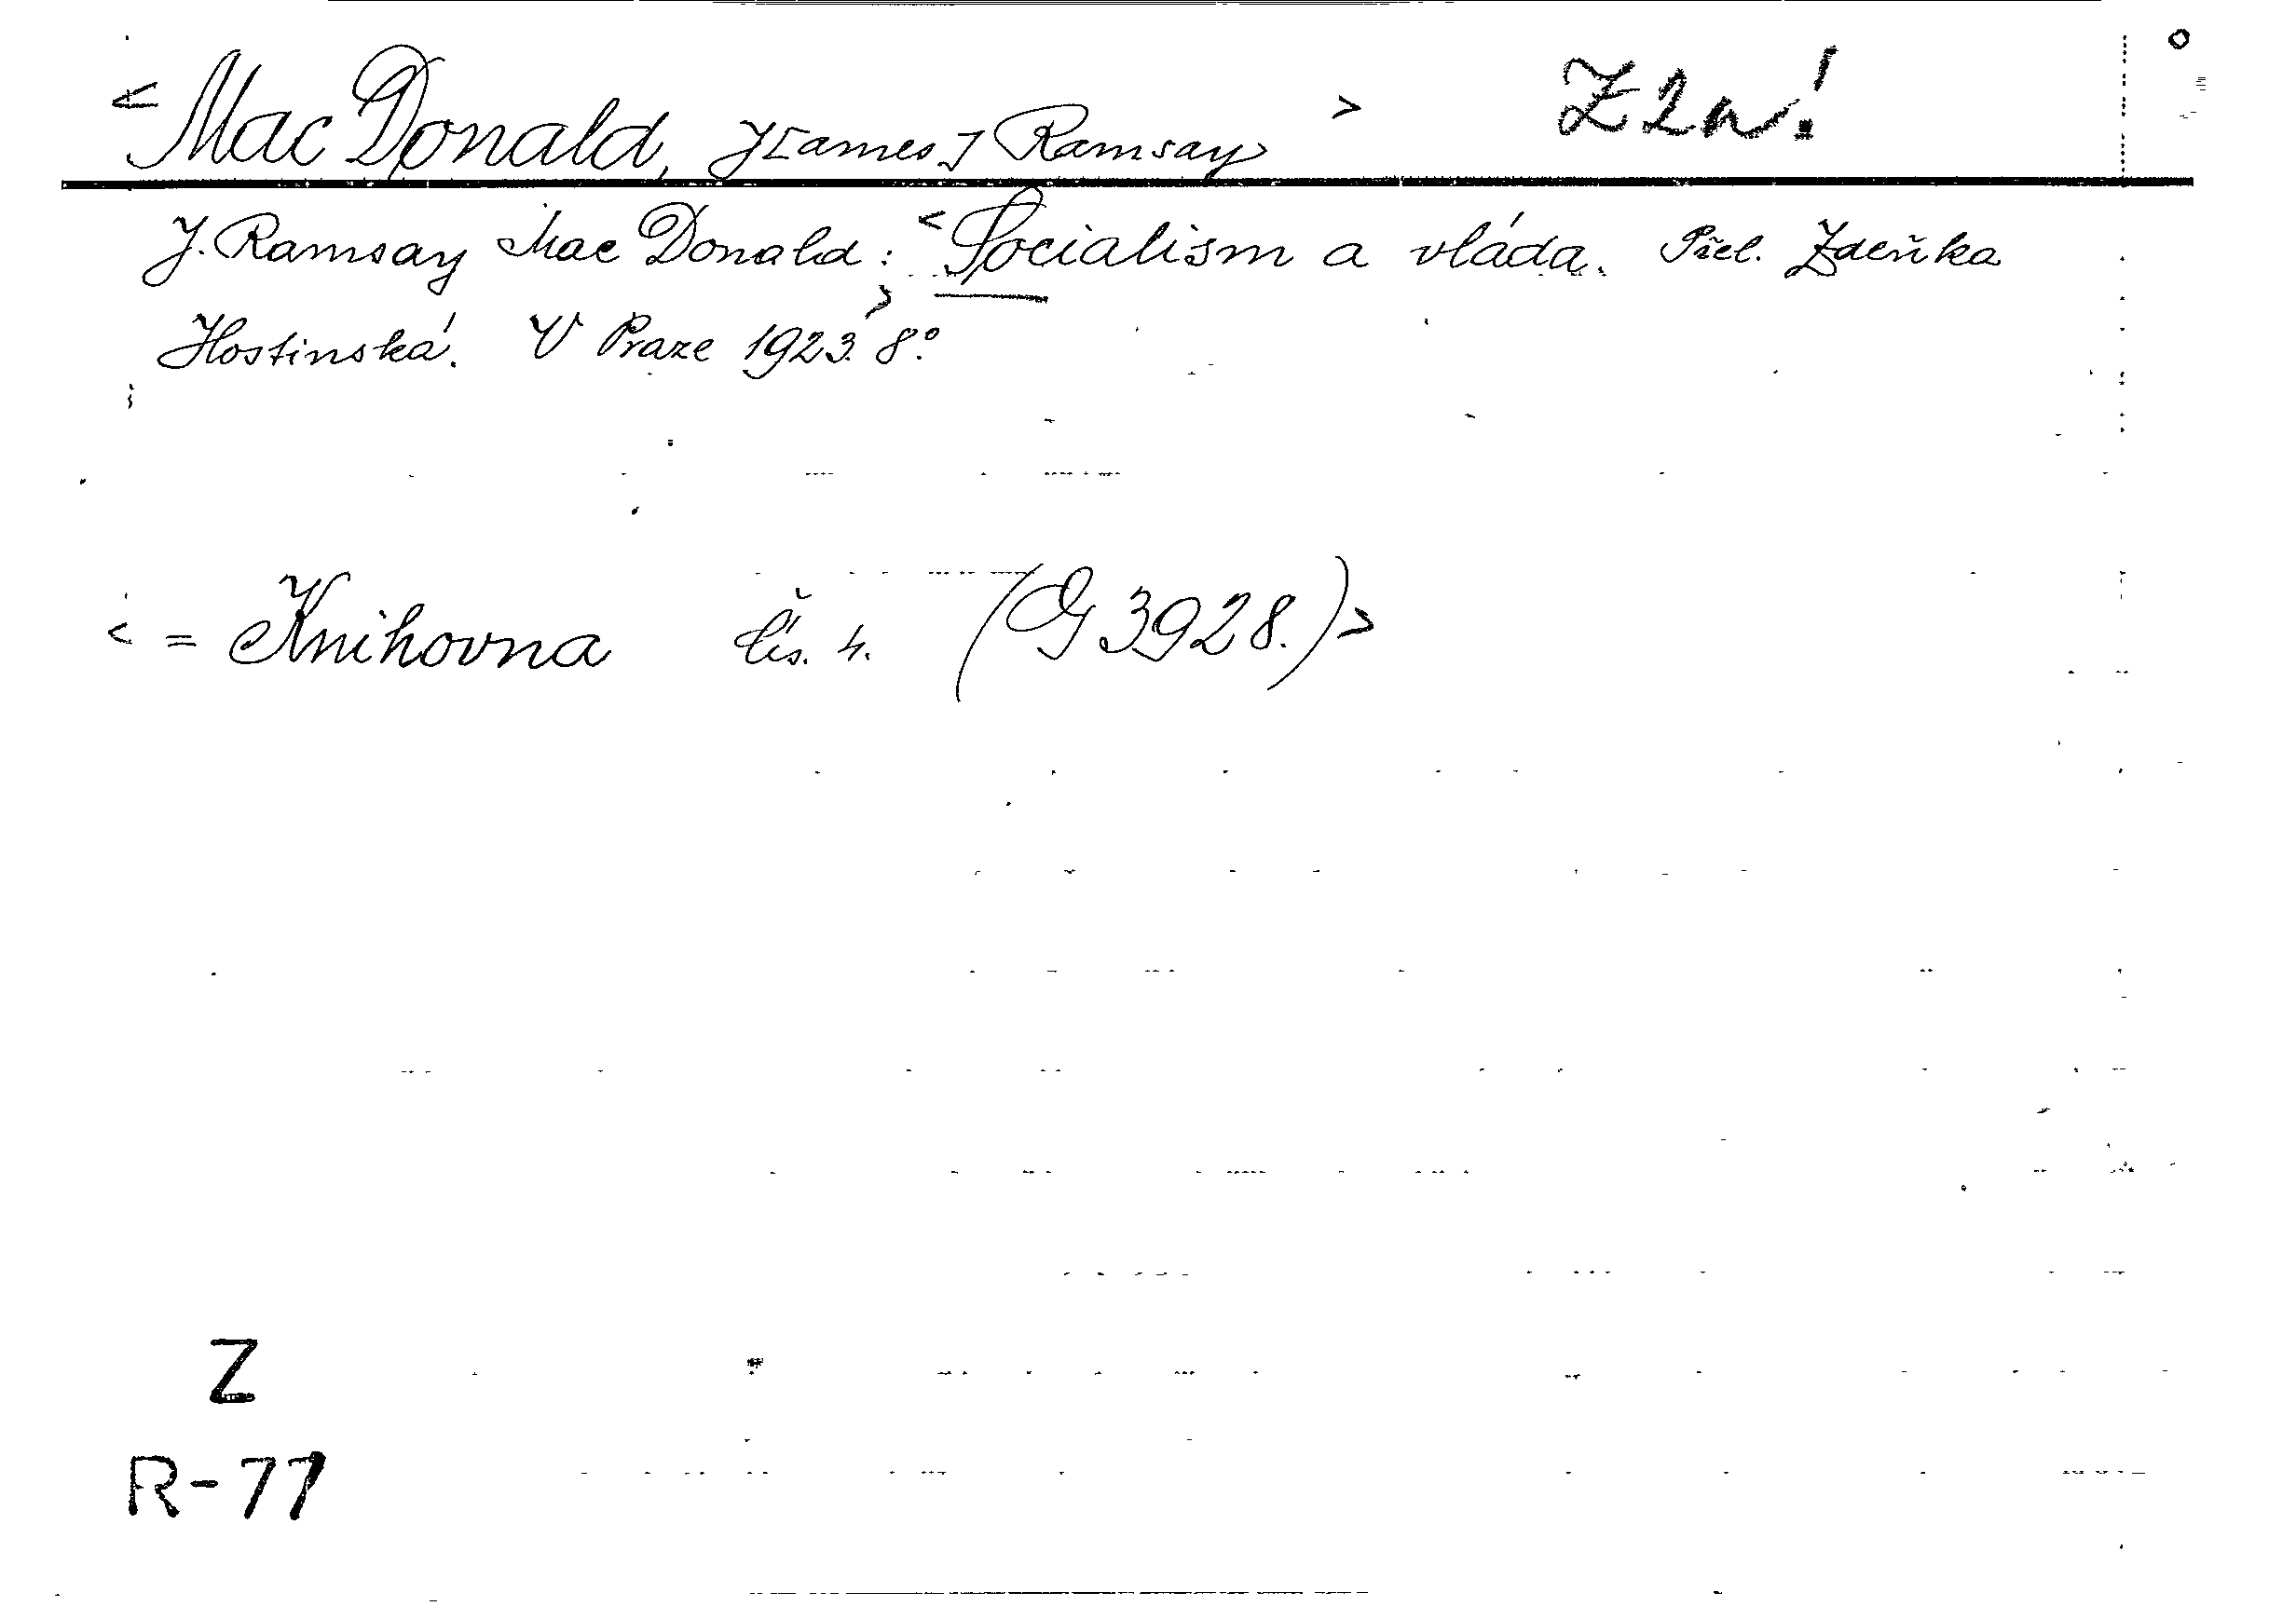 < Mac Donald, J[ames] Ramsay > Z 2 n!
J. Ramsay Mac Donald: < Socialism a vláda. Přel. Zdeňka
Hostinská. V Praze 1923. > 8°.
< = Knihovna čís. 4. (G 3928.) >
Z
R-77